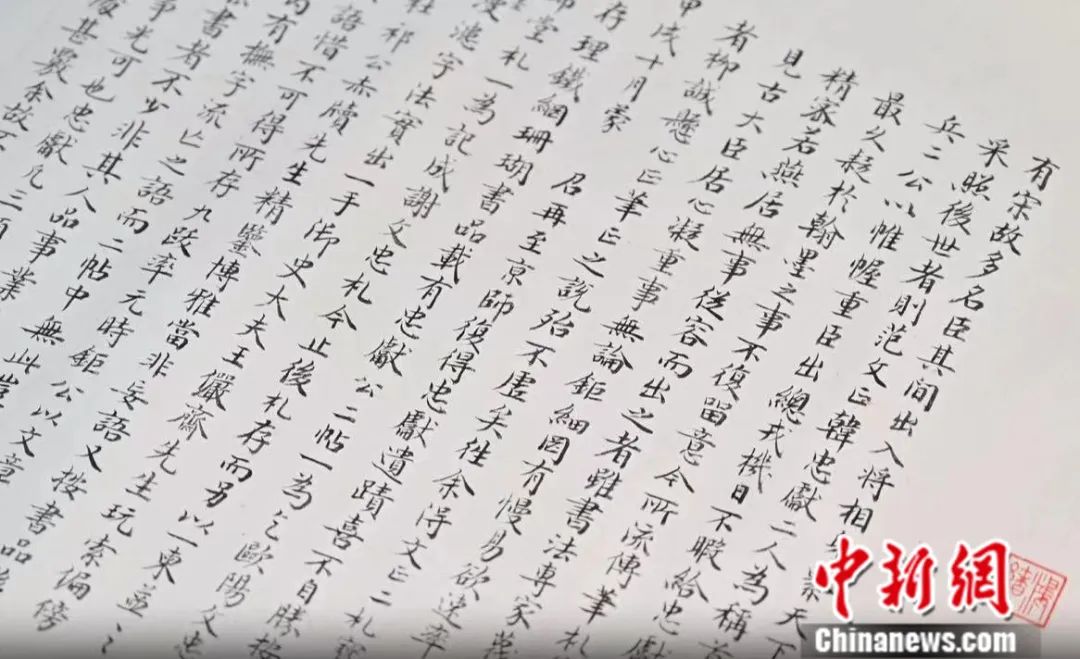 有宋故多名臣其間出入将相
采照後世者則范文正韓忠獻二人為稱首
兵二公以帷幄重臣出總戎機日不暇給忠獻
最久疑於翰墨之事不復留意今所流傳筆札
精宻若燕居無事從容而出之者雖書法專家蔑
見古大臣居心凝重事無論鉅細罔有慢易欲速率
者柳誠懸心正筆正之説殆不虛矣往余得文正二札
甲戌十月蒙 召再至京師復得忠獻遺蹟喜不自勝按
存理鐵網珊瑚書品載有忠獻公二帖一為乞歐陽文忠
堂札一為記成謝文忠札今止後札存而另以一柬並
漫漶字法實出一手御史大夫王儼齋先生玩索偏傍
祁公赤牘先生精鑒博雅當非妄語又按書品後
語惜不可得所存九跋率元時鉅公以文章
有撫字流亡之語而二帖中無此豈
書者不少非其人品事業
事光可也忠獻
甚夥余故
中新网
Chinanews.com